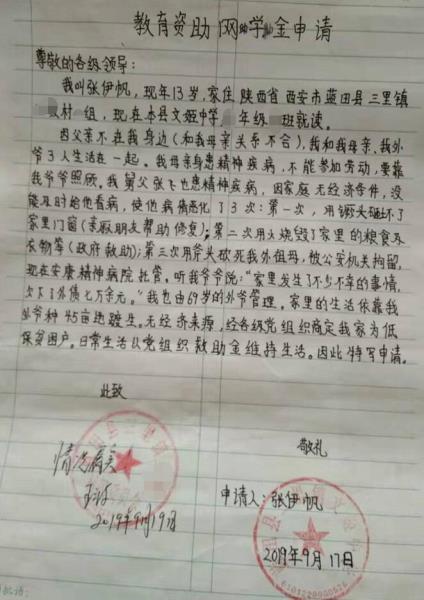 教育资助网助学金申请
尊敬的各级领导：
我叫张伊帆，现年13岁，家住陕西省西安市蓝田县三里镇
村 组，现在本县文姬中学 年级 班就读。
因父亲不在我身边(和我母亲关系不合)，我和我母亲、我外
爷3人生活在一起。我母亲身患精神疾病，不能参加劳动，要靠
我爷爷照顾。我舅父张飞也患精神疾病，因家庭无经济条件，没
能及时给他看病，使他病情恶化了3次：第一次，用镢头砸坏了
家里门窗(亲戚朋友帮助修复)；第二次用火烧毁了家里的粮食及
衣物等(政府救助)；第三次用斧头砍死我外祖母，被公安机关拘留，
现在安康精神病院托管。听我爷爷说：“家里发生了不少不幸的事情，
欠下了外债七万余元。”我也由69岁的外爷管理。家里的生活依靠我
外爷种4.5亩地度生。无经济来源，经各级党组织商定我家为低
保贫困户。日常生活以党组织救助金维持生活。因此，特写申请。
此致
敬礼
情况属实
申请人：张伊帆
2019年9月19日
2019年9月17日
6101220000626